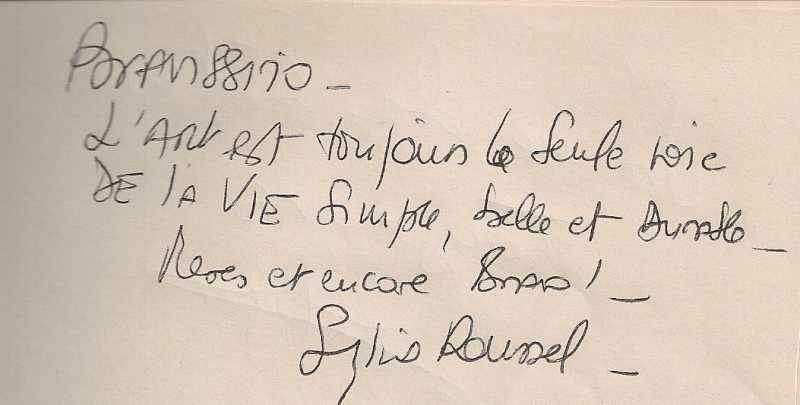 Bravissimo _
L'Art est toujours la seule voie
DE la VIE Simple, belle et Durable _
Merci et encore Bravo ! _
Sylvie Roussel _